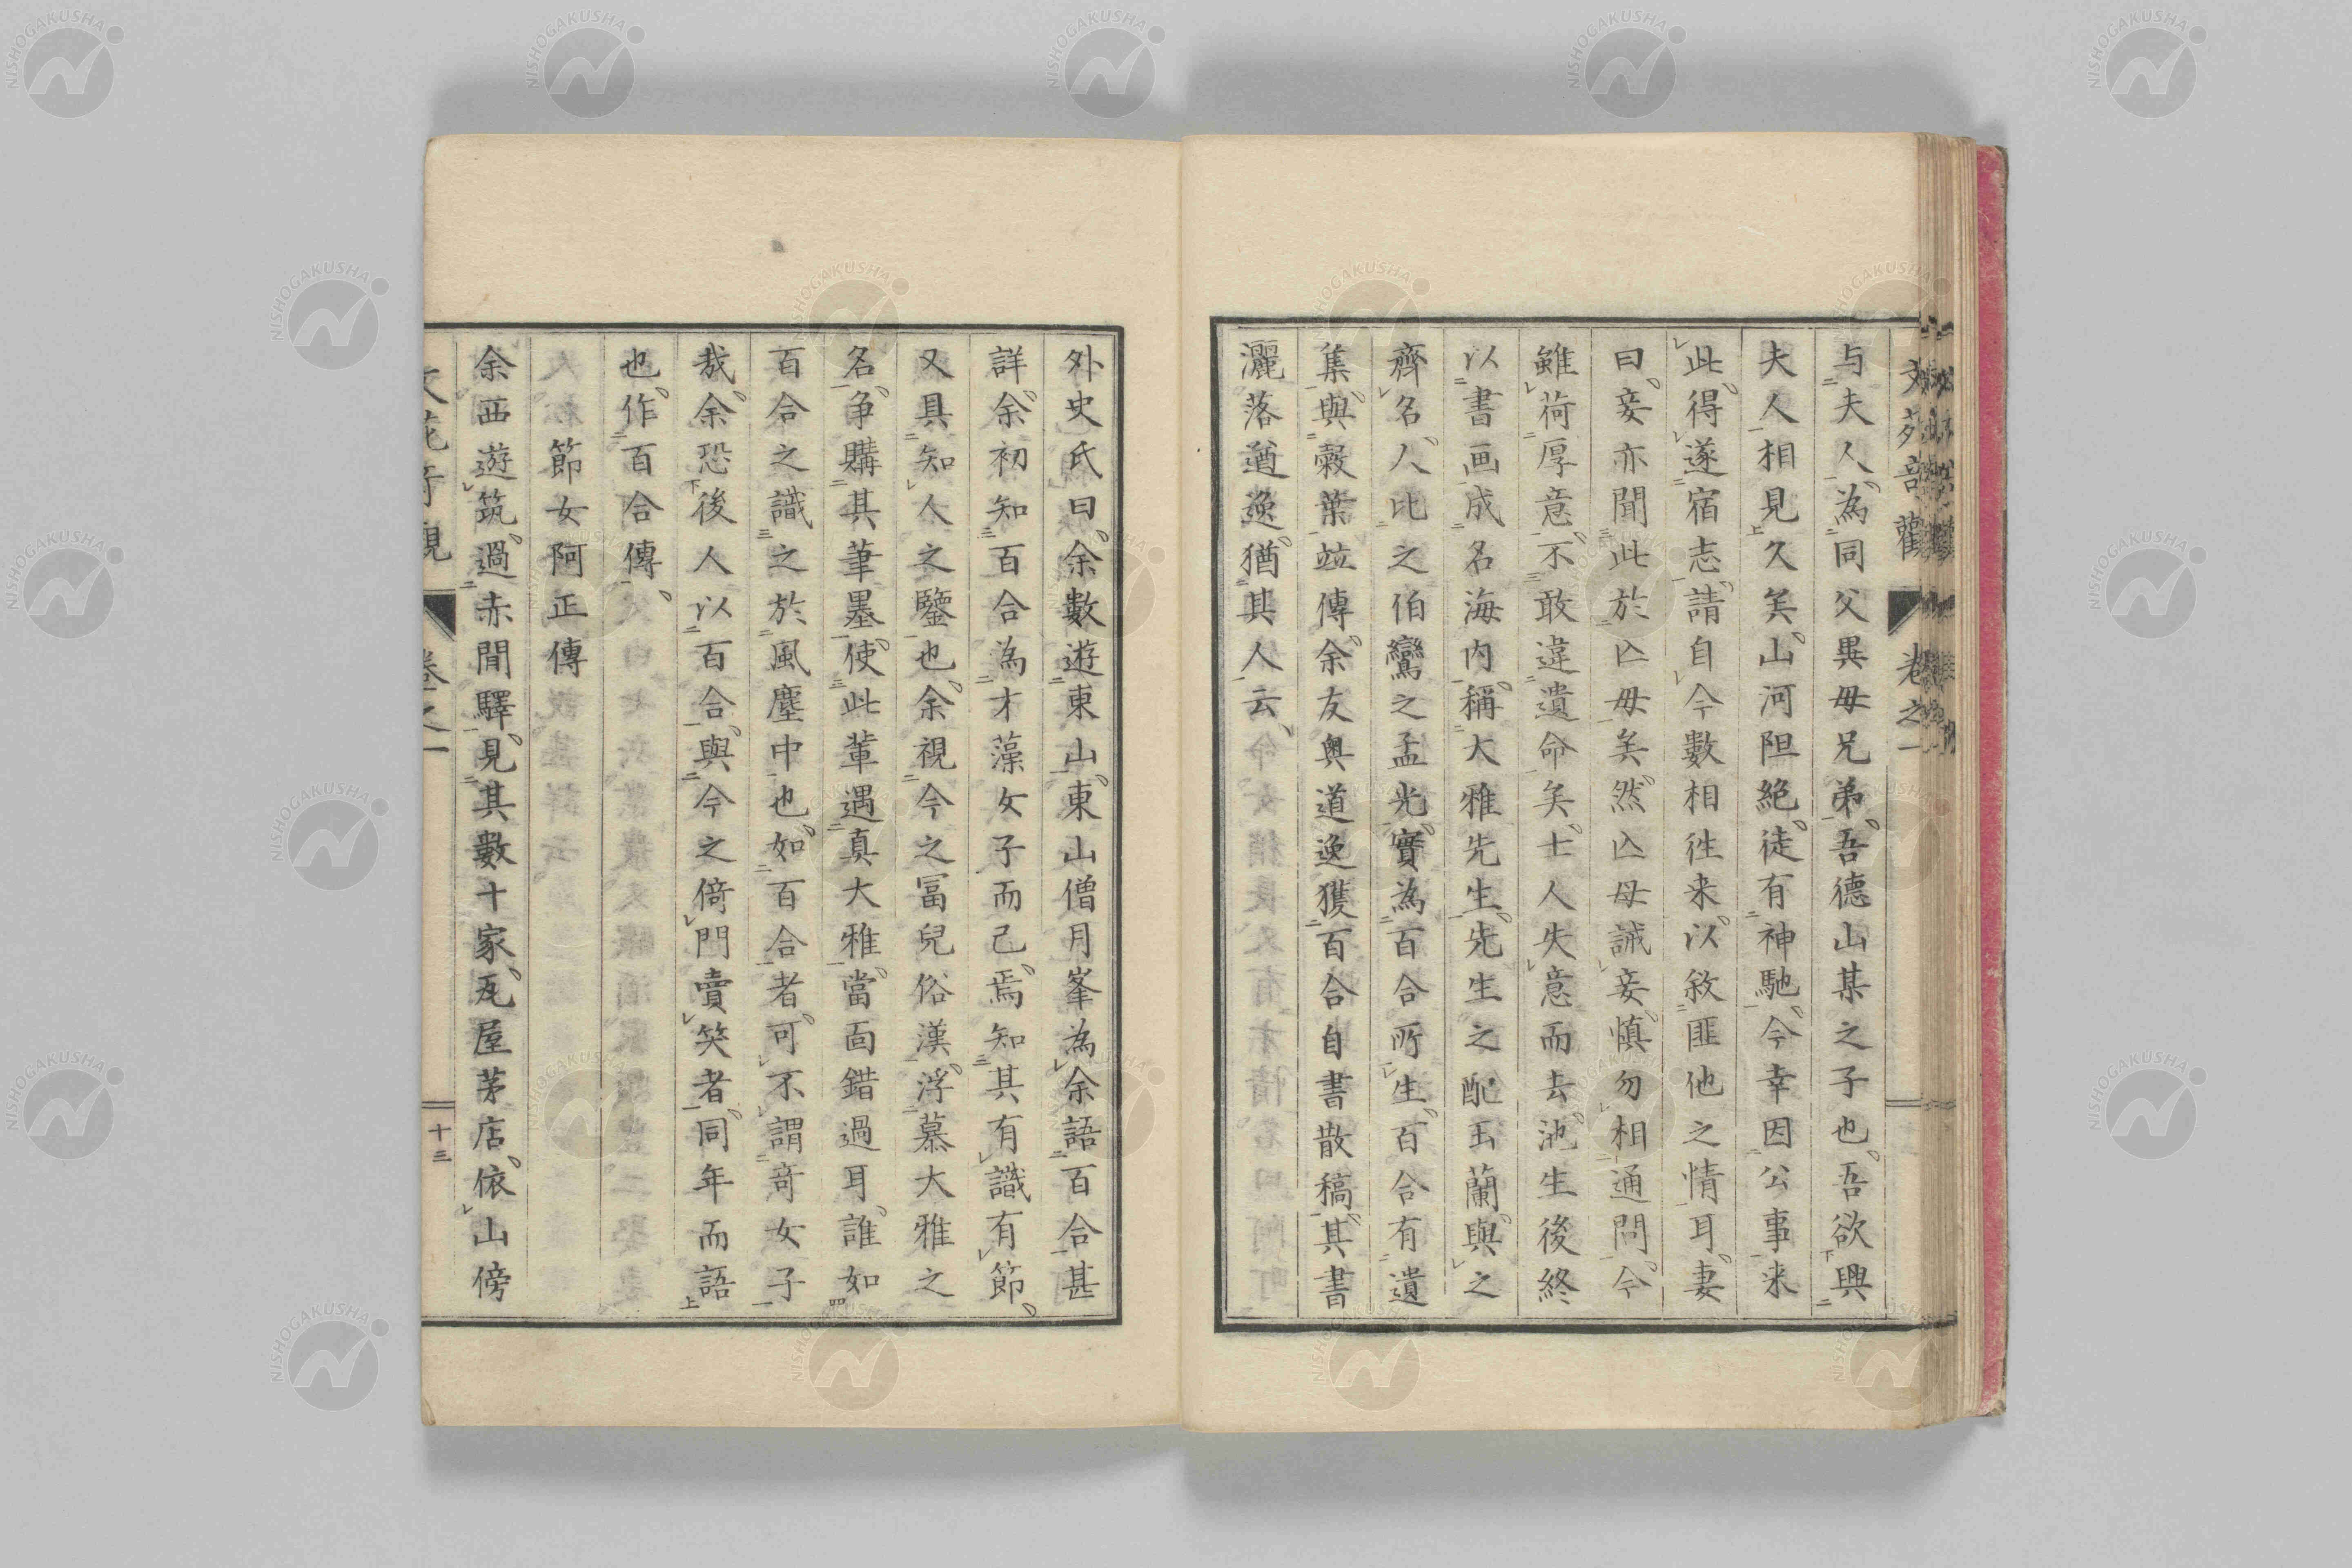 与夫人為同父異母兄弟吾德山某之子也吾欲與
夫人相見久矣山河阻絕徒有神馳今幸因公事来
此得遂宿志請自今數相徃来以敘匪他之情耳妻
曰妾亦聞此於亾母矣然亾母誡妾慎勿相通問今
雖荷厚意不敢違遺命矣士人失意而去池生後終
以書画成名海内稱大雅先生先生之配玉蘭與之
齊名人比之伯鸞之孟光實為百合所生百合有遺
集與穀葉竝傳余友奧道逸獲百合自書散稿其書
灑落遒逸猶其人云
外史氏曰余數遊東山東山僧月峯為余語百合甚
詳余初知百合為才藻女子而己焉知其有識有節
又具知人之鑒也余視今之冨兒俗漢浮慕大雅之
名争購其筆墨使此輩遇真大雅當面錯過耳誰如
百合之識之於風塵中也如百合者可不謂竒女子
哉余恐後人以百合與今之倚門賣笑者同年而語
也作百合傳
節女阿正傳
余西遊筑過赤間驛見其數十家瓦屋茅店依山傍
卷之一
十三
NISHOGAKUSHA